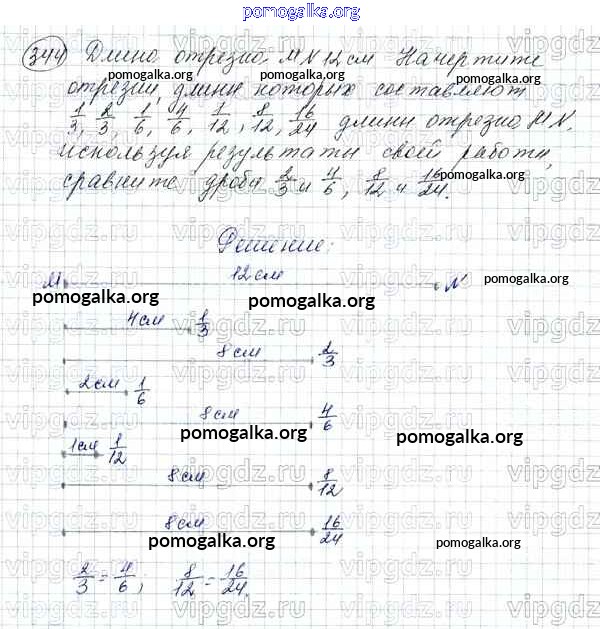 pomogalka.org
344 Длина отрезка MN 12 см Начертите
pomogalka.org pomogalka.org
отрезки, длины которых составляют
1/3, 2/3, 1/6, 4/6, 1/12, 8/12, 16/24 длины отрезка MN,
используя результаты своей работы,
сравните дроби 2/3 и 4/6, 8/12 и 16/24.
pomogalka.org
Решение:
M 12 см N pomogalka.org
pomogalka.org pomogalka.org
4 см 1/3
8 см 2/3
2 см 1/6
8 см 4/6
pomogalka.org pomogalka.org
1 см 1/12
8 см 8/12
8 см 16/24
pomogalka.org pomogalka.org
2/3 = 4/6, 8/12 = 16/24.
vipgdz.ru